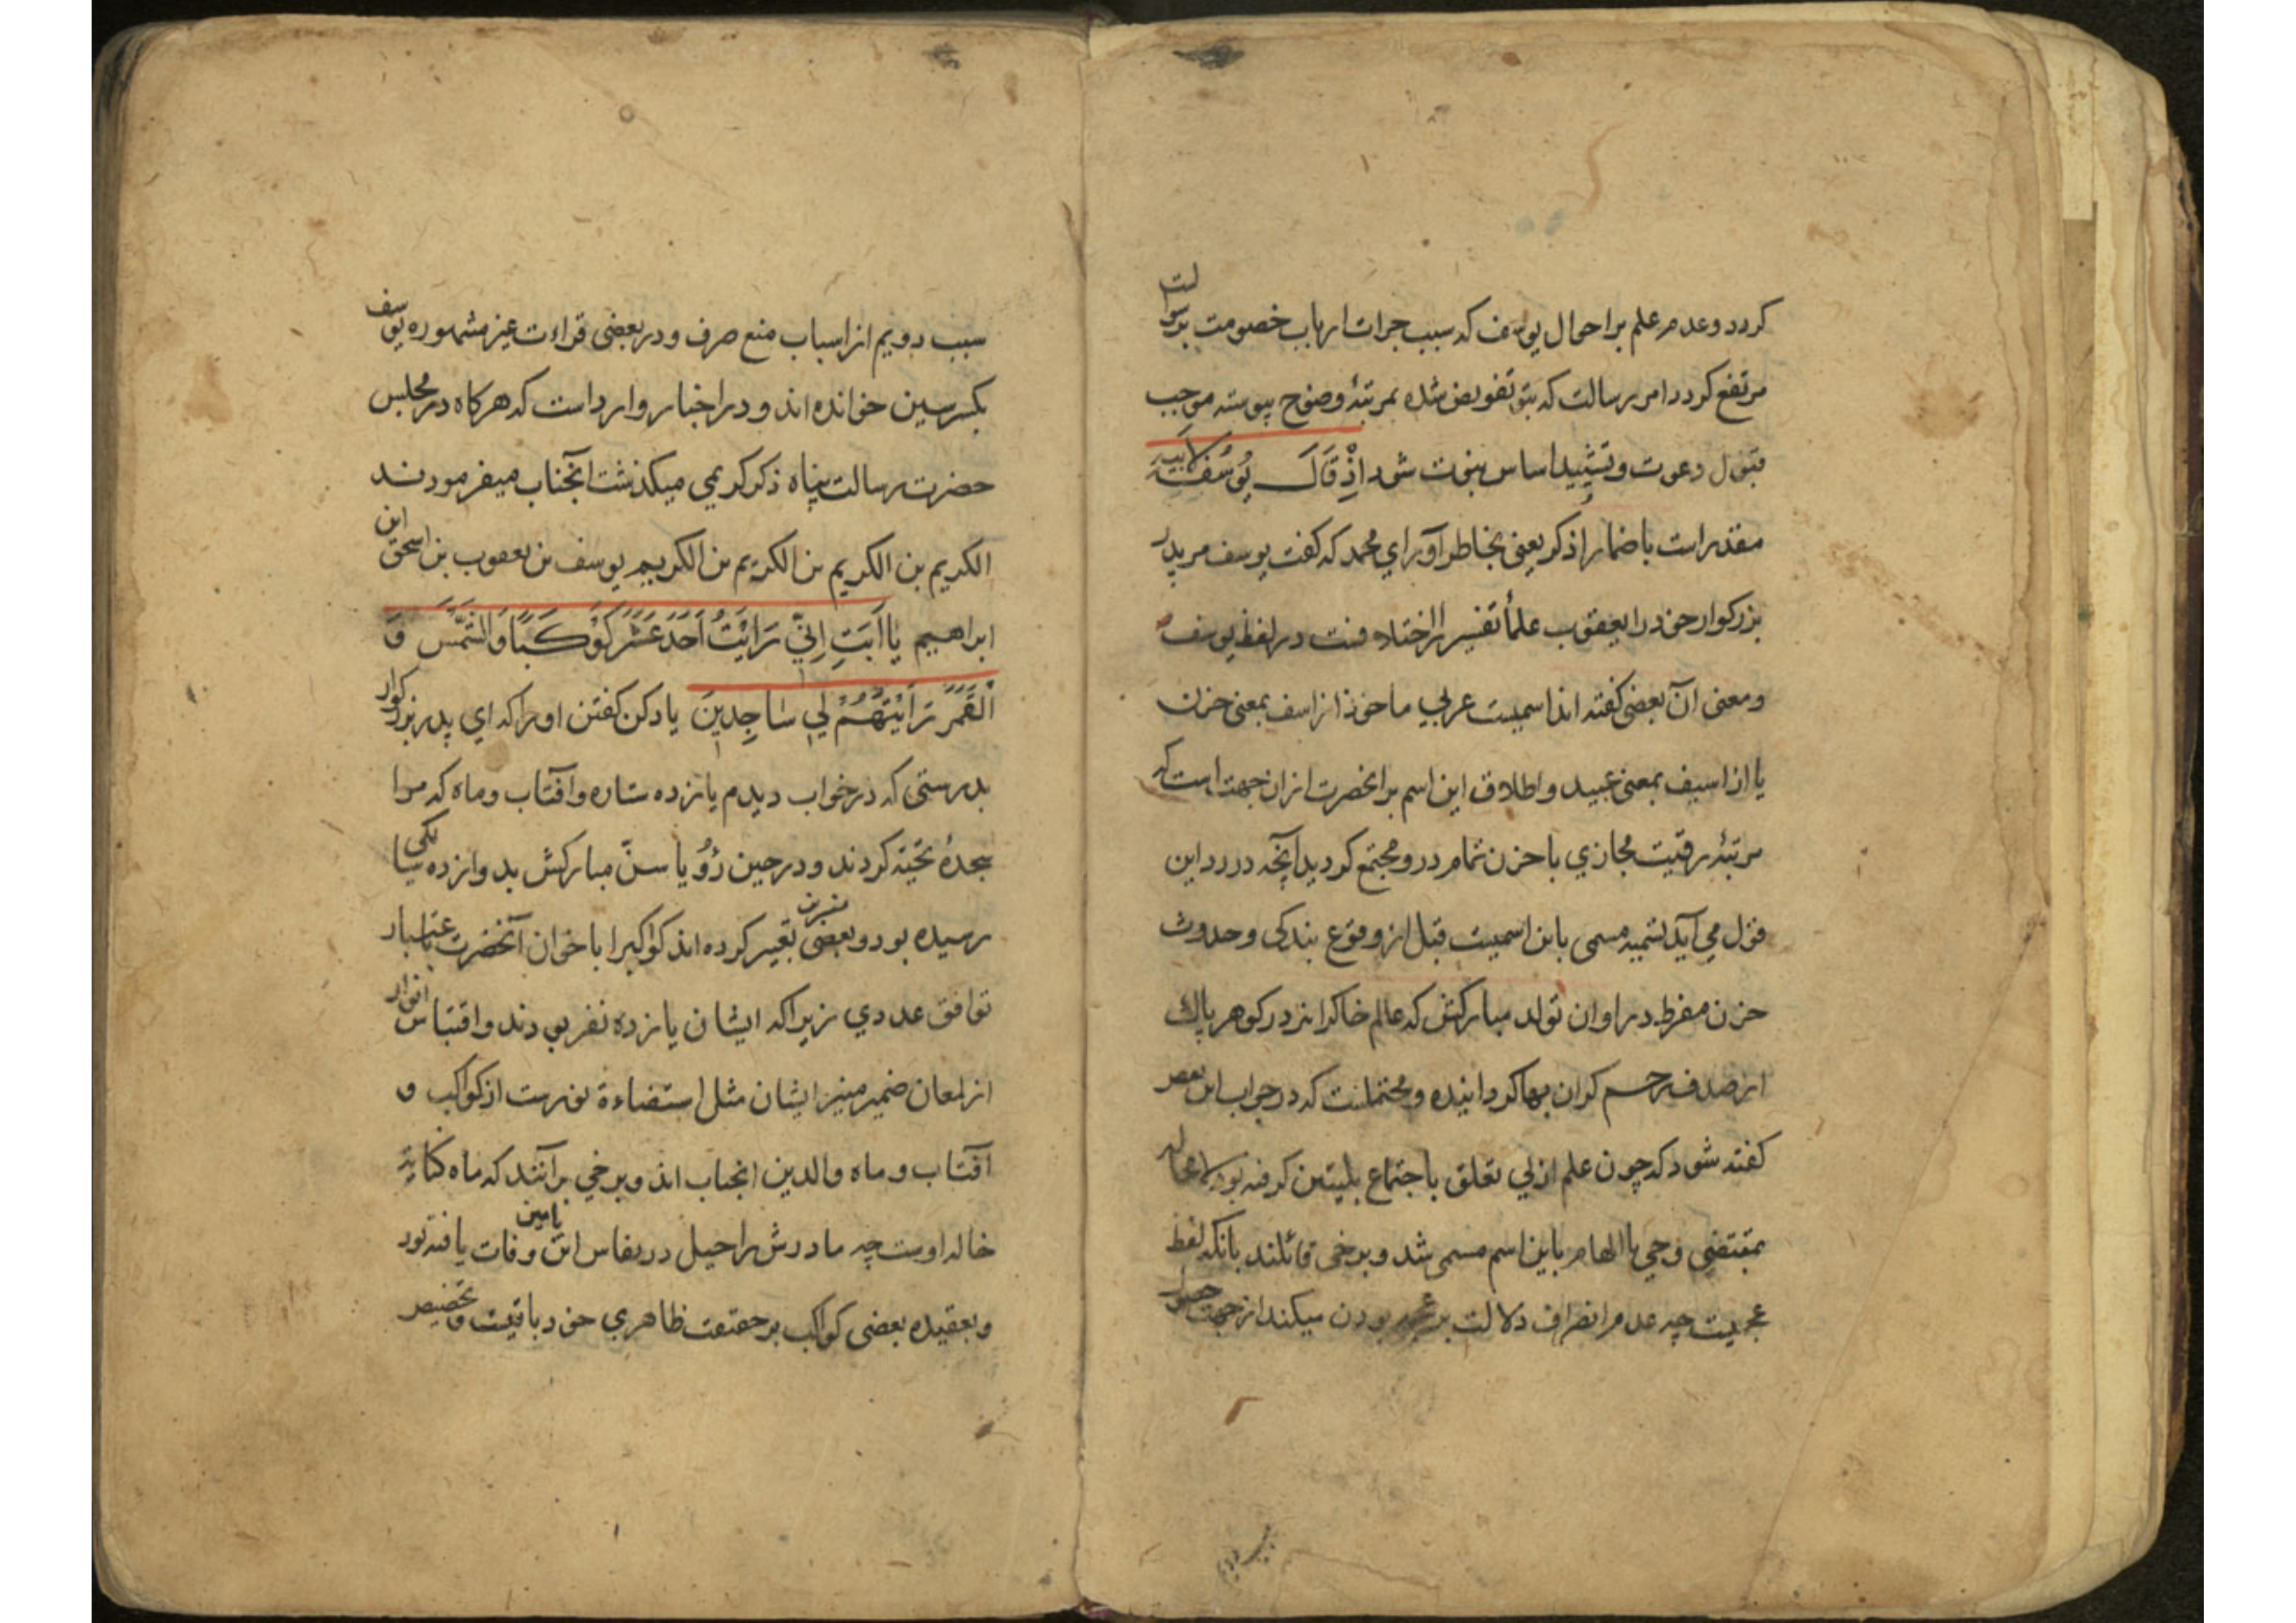 کردد و عدم علم بر احوال یوسف که سبب جرات ارباب خصومت بر سوالت
مرتفع کردد امر رسالت که بتو تفویض شده بمرتبهٔ وضوح پیوسته موجب
قبول دعوت و تشیید اساس نبوت شود اِذْ قَالَ یُوسُفُ لِاَبِیهِ
مقدر است باضمار اذکر یعنی بخاطر آور ای محمد که کفت یوسف مر پدر
بزرکوار خود را یعقوب علمأ تفسیر را اختلافست در لفظ یوسف
و معنی آن بعضی کفته اند اسمیست عربی ماخوذ از اسف بمعنی حزن
یا از اسیف بمعنی عبید و اطلاق این اسم بر انحضرت از ان جهت است که
مرتبهٔ رقیت مجازی با حزن تمام در و مجتمع کردید آنچه در رد این
قول می آید تسمیه مسمی باین اسمیست قبل از وقوع بندکی و حدوث
حزن مفرط در اوان تولد مبارکش که عالم خاکرا بزدر کوهر پاک
از صدف رحم کران بها کردانیده و محتملست که در جواب این بعض
کفته شود که چون علم ازلی تعلق باجتماع بلیتین کرفته بود لا محاله
بمقتضی وحی یا الهام باین اسم مسمی شد و برخی قائلند بانکه لفظ
عجمیست چه عدم انصراف دلالت بر عجمه بودن میکند از جهت حصول
سبب دویم
سبب دویم از اسباب منع صرف و در بعضی قراءت غیر مشهوره یوسف
بکسر سین خوانده اند و در اخبار وارد است که هر کاه در مجلس
حضرت رسالت پناه ذکر کریمی میکذشت آنجناب میفرمودند
الکریم بن الکریم بن الکریم بن الکریم یوسف بن یعقوب بن اسحق ابن
ابراهیم یٰا اَبَتِ اِنّی رَاَیْتُ اَحَدَ عَشَرَ کَوْکَبًا وَالشَّمْسَ وَ
الْقَمَرَ رَاَیْتُهُمْ لی سٰاجِدینَ یاد کن کفتن او را که ای پدر بزرکوار
بدرستی که در خواب دیدم یانزده ستاره و افتاب و ماه که مرا
سجدهٔ تحیّة کردند و در حین رُؤیا سنّ مبارکش بدوازده سالکی
رسیده بود و بعضی مفسرین تعبیر کرده اند کواکبرا باخوان آنحضرت باعتبار
توافق عددی زیرا که ایشان یانزده نفر بودند و اقتباس انوار
از لمعان ضمیر منیر ایشان مثل استضاءة نورست از کواکب و
آفتاب و ماه والدین انجناب اند و برخی برآنند که ماه کنایة
خاله اوست چه مادرش راحیل در نفاس ابن یامین وفات یافته بود
و بعقیده بعضی کواکب بر حقیقت ظاهری خود باقیست و تخصیص